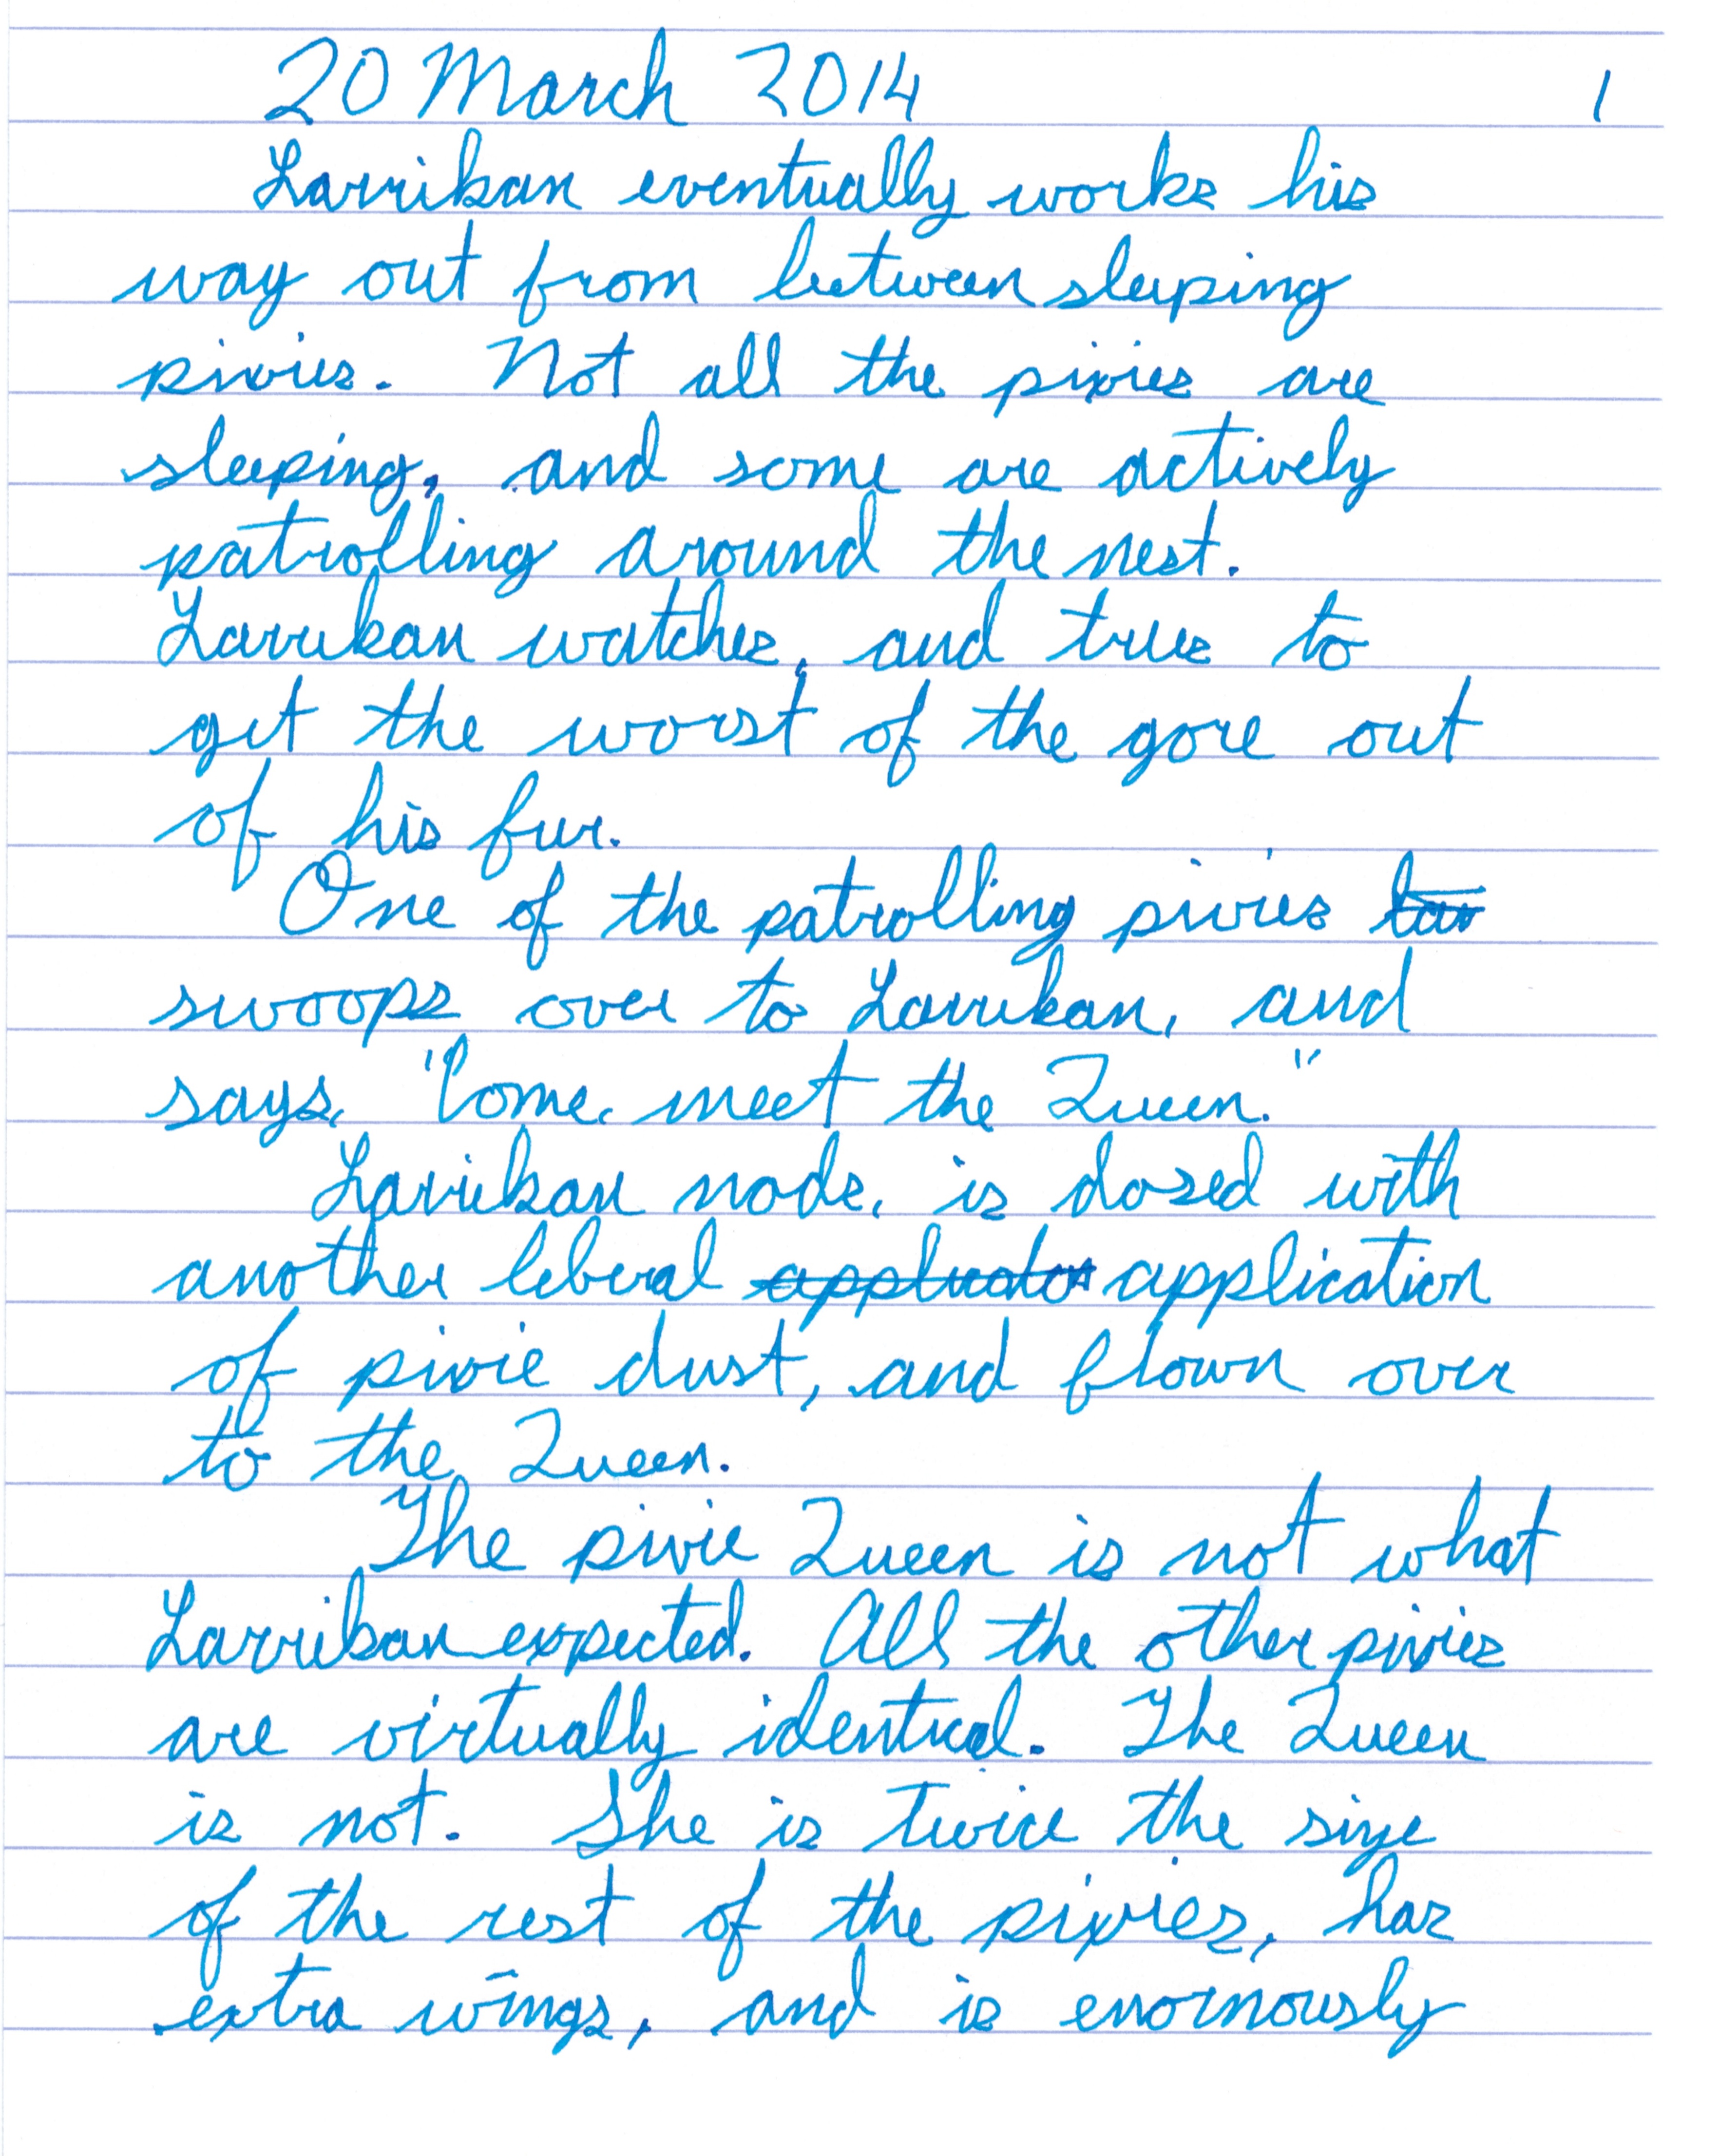 20 March 2014 1
Larrikan eventually works his
way out from between sleeping
pixies. Not all the pixies are
sleeping, and some are actively
patrolling around the nest.
Larrikan watches, and tries to
get the worst of the gore out
of his fur.
One of the patrolling pixies
swoops over to Larrikan, and
says, "Come, meet the Queen."
Larrikan nods, is dosed with
another liberal applicator application
of pixie dust, and flown over
to the Queen.
The pixie Queen is not what
Larrikan expected. All the other pixies
are virtually identical. The Queen
is not. She is twice the size
of the rest of the pixies, has
extra wings, and is enormously